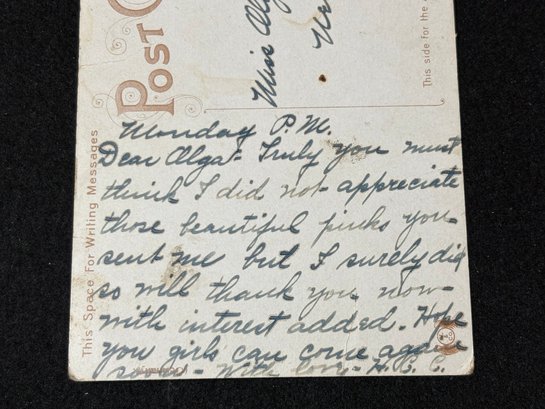 POST
This Space For Writing Messages
This side for the
Miss Olga
Monday P.M.
Dear Olga - Truly you must
think I did not appreciate
those beautiful pinks you
sent me but I surely did
so will thank you now -
with interest added. Hope
you girls can come again
soon - With love - H. C. C.